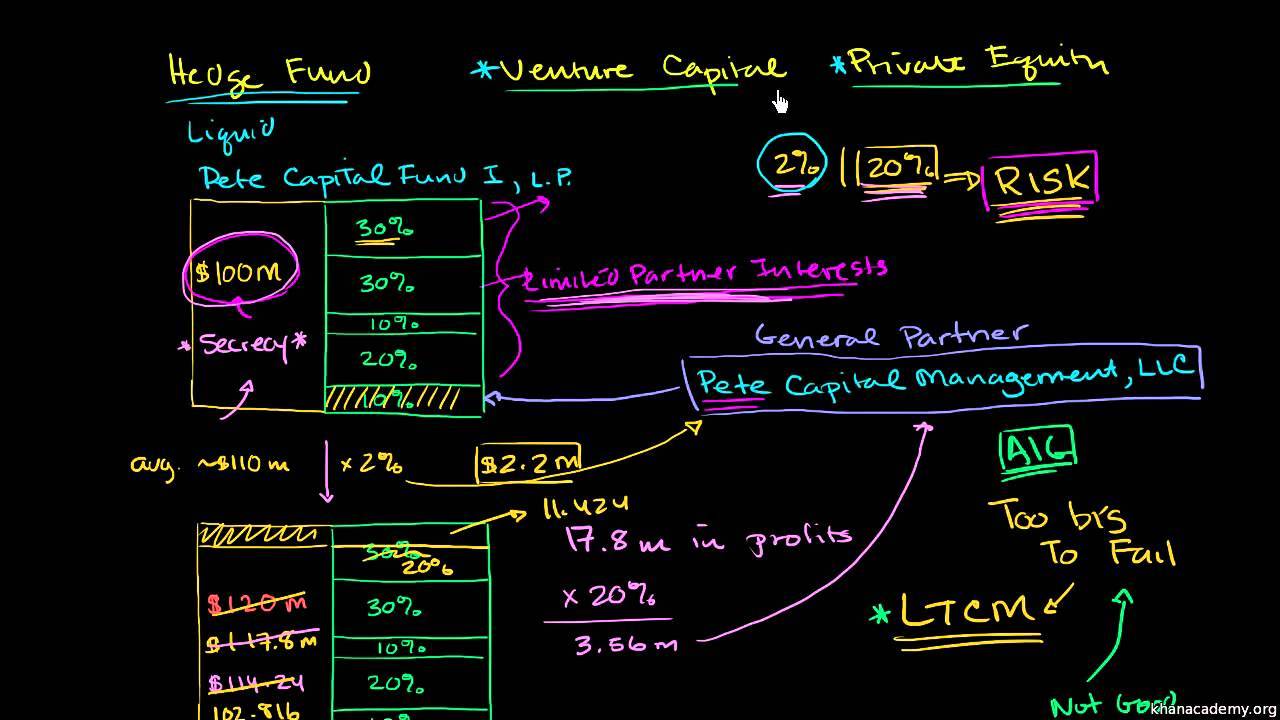 Hedge Fund
*Venture Capital
*Private Equity
Liquid
2% || 20% => RISK
Pete Capital Fund I, L.P.
30%
$100m
30%
Limited Partner Interests
10%
*Secrecy*
20%
General Partner
Pete Capital Management, LLC
10%
avg. ~$110m x 2% $2.2m
AIG
11.424
Too big
To Fail
17.8m in profits
30%
20%
x 20%
$120m
30%
*LTCM
$117.8m
10%
3.56m
$114.24
20%
102.816
Not Good
khanacademy.org